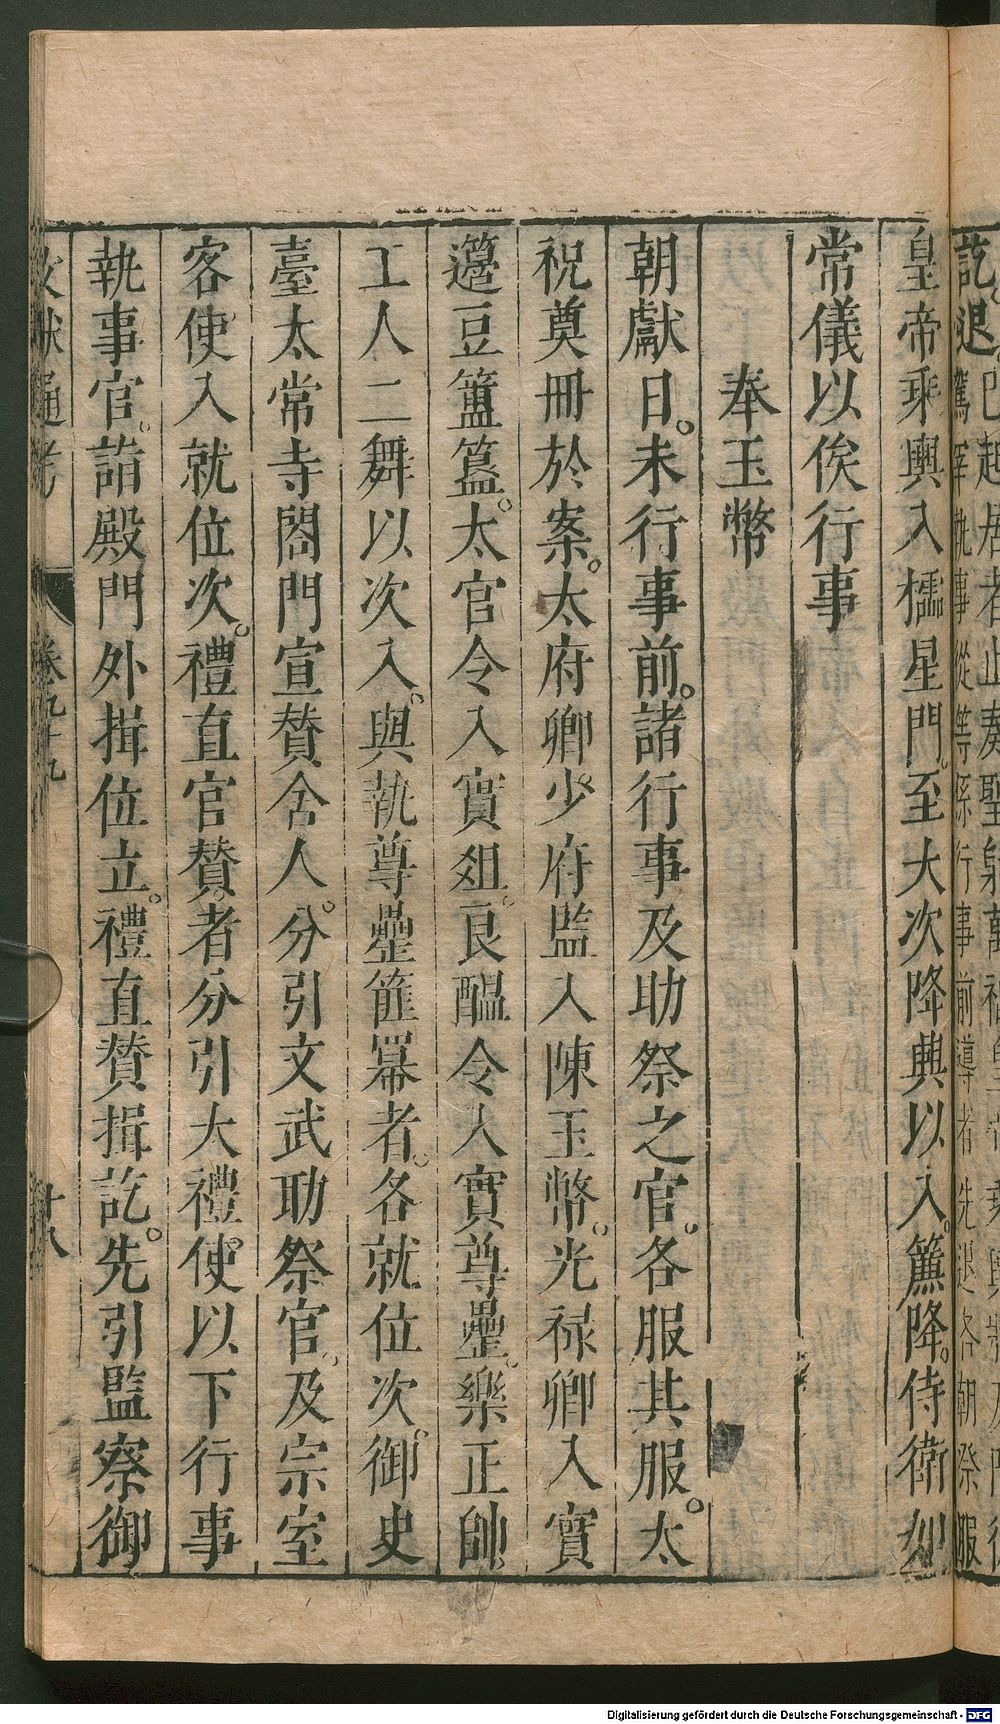 皇帝乘輿入櫺星門。至大次降輿以入。簾降。侍衛如
常儀以俟行事
奉玉幣
朝獻日。未行事前。諸行事及助祭之官。各服其服。太
祝奠冊於案。太府卿少府監入陳玉幣。光禄卿入實
籩豆簠簋。太官令入實俎。良醞令入實尊罍。樂正帥
工人二舞以次入。與執尊罍篚冪者。各就位次。御史
臺太常寺閤門宣贊舍人。分引文武助祭官。及宗室
客使入就位次。禮直官贊者分引大禮使以下行事
執事官。詣殿門外揖位立。禮直贊揖訖。先引監察御
文獻通考
卷九十九
十八
Digitalisierung gefördert durch die Deutsche Forschungsgemeinschaft - DFG